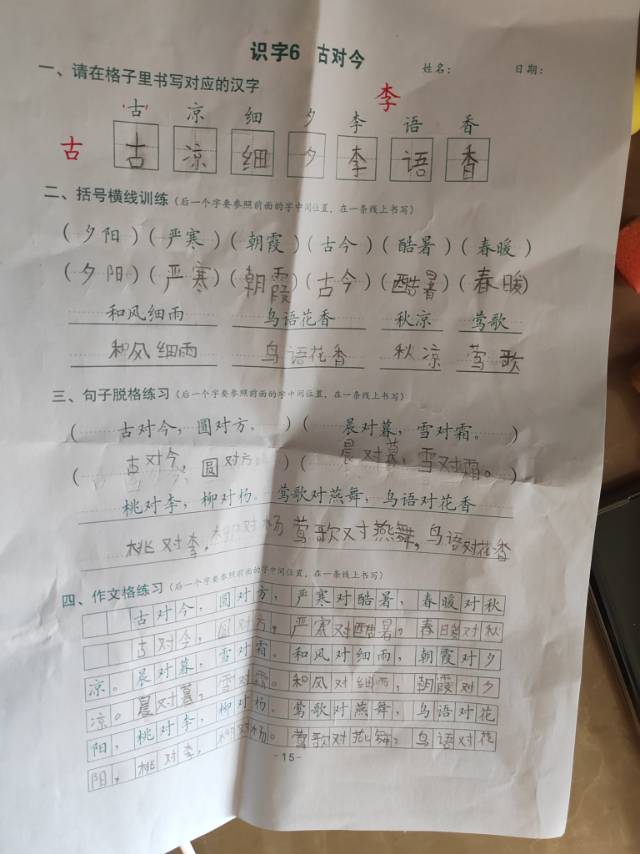 识字6 古对今
姓名： 日期：
一、请在格子里书写对应的汉字
李
古 凉 细 夕 李 语 香
古
古 凉 细 夕 李 语 香
二、括号横线训练（后一个字要参照前面的字中间位置，在一条线上书写）
（夕阳）（严寒）（朝霞）（古今）（酷暑）（春暖）
（夕阳）（严寒）（朝霞）（古今）（酷暑）（春暖）
和风细雨 鸟语花香 秋凉 莺歌
和风细雨 鸟语花香 秋凉 莺歌
三、句子脱格练习（后一个字要参照前面的字中间位置，在一条线上书写）
（ 古对今，圆对方。 ）（ 晨对暮，雪对霜。 ）
（ 古对今，圆对方。 ）（ 晨对暮，雪对霜。 ）
桃对李，柳对杨。莺歌对燕舞，鸟语对花香
桃对李，柳对杨 莺歌对燕舞，鸟语对花香
四、作文格练习（后一个字要参照前面的字中间位置，在一条线上书写）
古对今，圆对方，严寒对酷暑，春暖对秋
古对今，圆对方，严寒对酷暑，春暖对秋
凉。晨对暮，雪对霜。和风对细雨，朝霞对夕
凉。晨对暮，雪对霜。和风对细雨，朝霞对夕
阳，桃对李，柳对杨。莺歌对燕舞，鸟语对花
阳，桃对李，柳对杨。莺歌对燕舞，鸟语对花
-15-